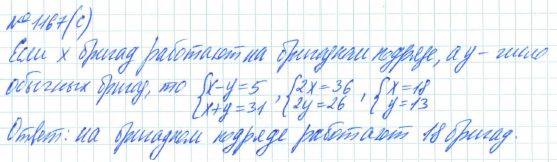 № 1167(с)
Если x бригад работают на бригадном подряде, а y – число
обычных бригад, то { x-y=5 x+y=31 , { 2x=36 2y=26 , { x=18 y=13
Ответ: на бригадном подряде работают 18 бригад.